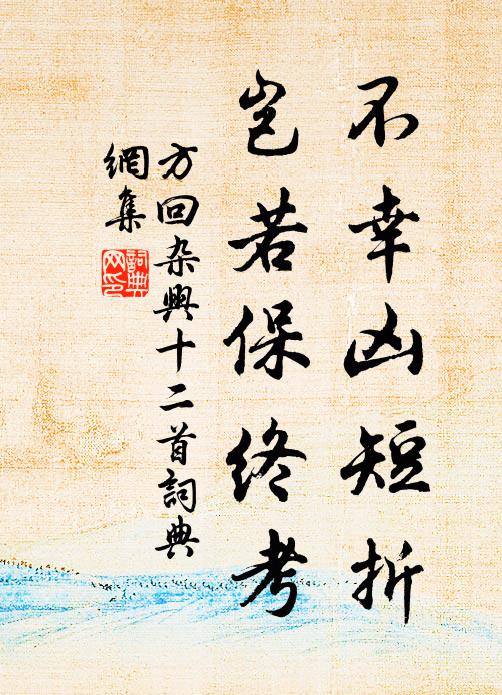 不幸凶短折
岂若保终考
方回杂兴十二首詞典
網集
詞典網印